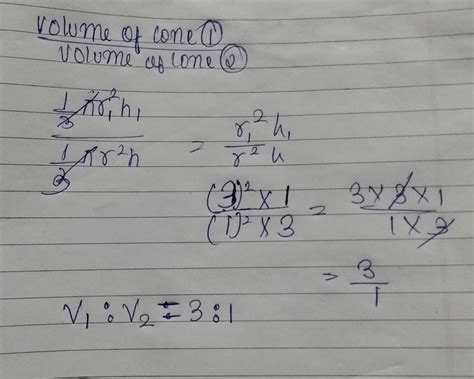 Volume of cone ①
Volume of cone ②
1/3 πr₁²h₁ / 1/3 πr²h = r₁²h₁ / r²h
(3)² × 1 / (1)² × 3 = 3 × 3 × 1 / 1 × 3
= 3/1
V₁ : V₂ = 3 : 1